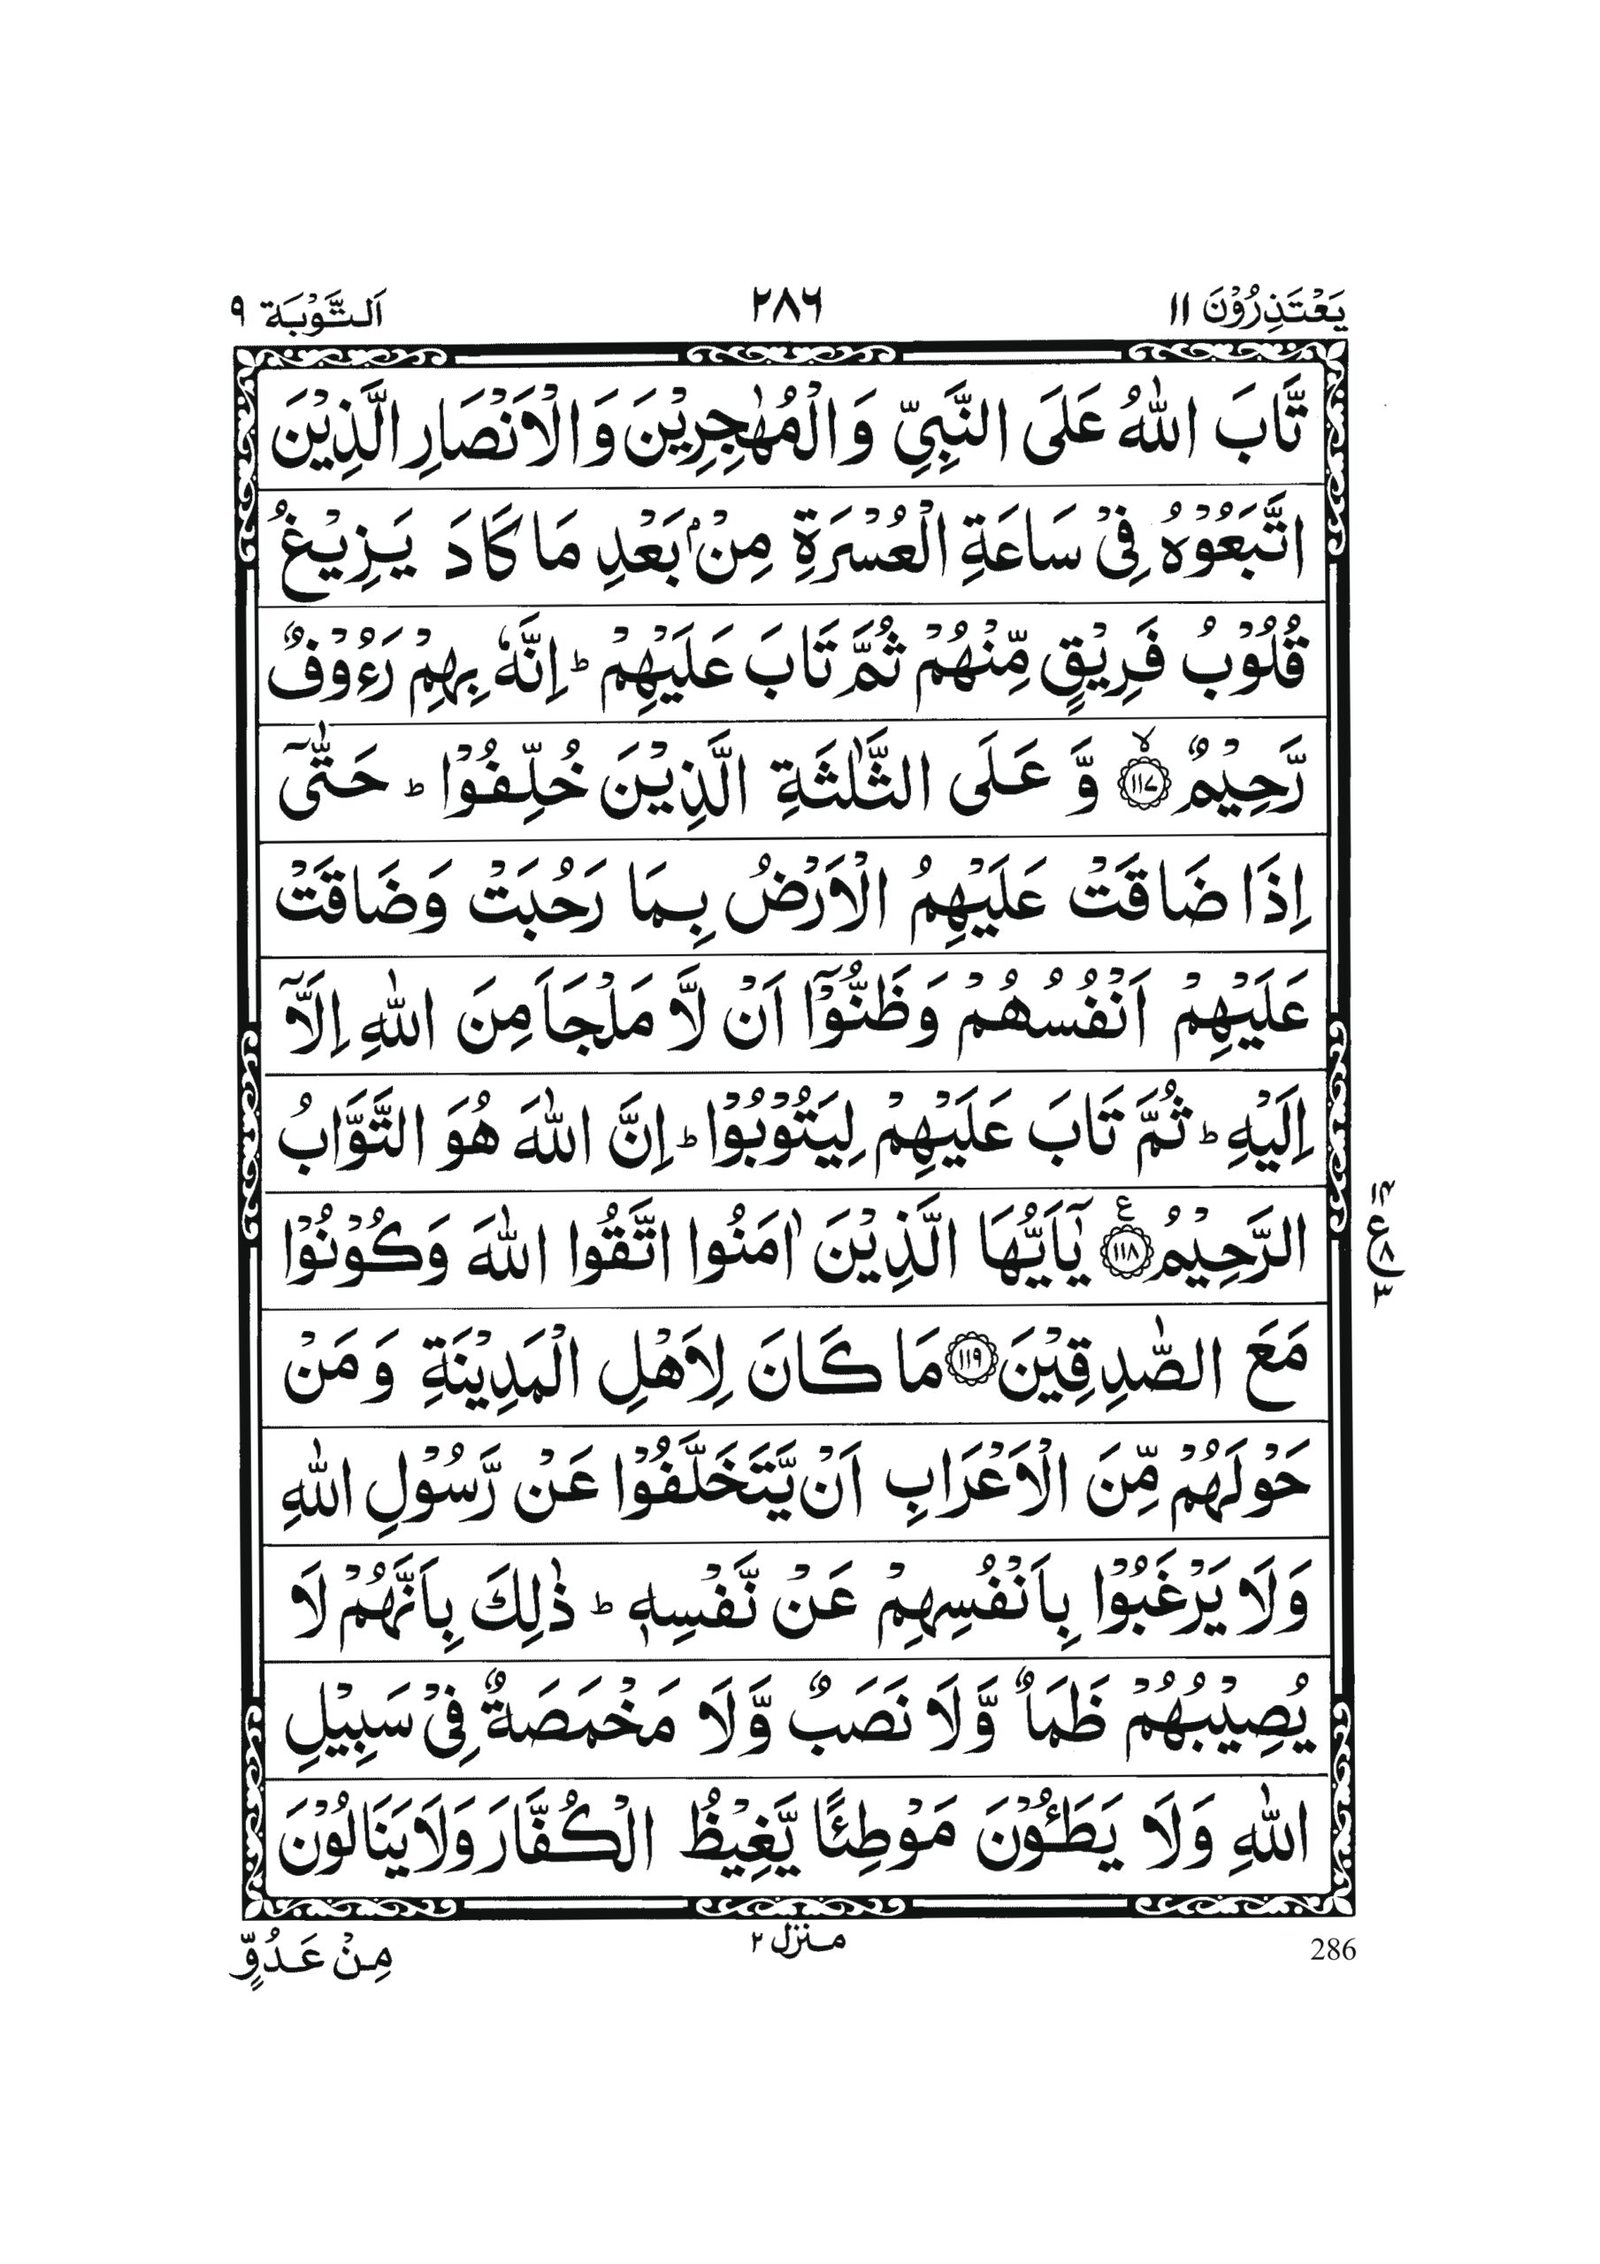 يَعْتَذِرُوْنَ ١١ ٢٨٦ اَلتَّوْبَة ٩
تَّابَ اللّٰهُ عَلَى النَّبِيِّ وَالْمُهٰجِرِيْنَ وَالْاَنْصَارِ الَّذِيْنَ
اتَّبَعُوْهُ فِيْ سَاعَةِ الْعُسْرَةِ مِنْۢ بَعْدِ مَا كَادَ يَزِيْغُ
قُلُوْبُ فَرِيْقٍ مِّنْهُمْ ثُمَّ تَابَ عَلَيْهِمْ ؕ اِنَّهٗ بِهِمْ رَءُوْفٌ
رَّحِيْمٌ ۙ﴿١١٧﴾ وَّ عَلَى الثَّلٰثَةِ الَّذِيْنَ خُلِّفُوْا ؕ حَتّٰۤى
اِذَا ضَاقَتْ عَلَيْهِمُ الْاَرْضُ بِمَا رَحُبَتْ وَضَاقَتْ
عَلَيْهِمْ اَنْفُسُهُمْ وَظَنُّوْۤا اَنْ لَّا مَلْجَاَ مِنَ اللّٰهِ اِلَّاۤ
اِلَيْهِ ؕ ثُمَّ تَابَ عَلَيْهِمْ لِيَتُوْبُوْا ؕ اِنَّ اللّٰهَ هُوَ التَّوَّابُ
الرَّحِيْمُ ﴿١١٨﴾ ع يٰۤاَيُّهَا الَّذِيْنَ اٰمَنُوا اتَّقُوا اللّٰهَ وَكُوْنُوْا
مَعَ الصّٰدِقِيْنَ ﴿١١٩﴾ مَا كَانَ لِاَهْلِ الْمَدِيْنَةِ وَمَنْ
حَوْلَهُمْ مِّنَ الْاَعْرَابِ اَنْ يَّتَخَلَّفُوْا عَنْ رَّسُوْلِ اللّٰهِ
وَلَا يَرْغَبُوْا بِاَنْفُسِهِمْ عَنْ نَّفْسِهٖ ؕ ذٰلِكَ بِاَنَّهُمْ لَا
يُصِيْبُهُمْ ظَمَاٌ وَّلَا نَصَبٌ وَّلَا مَخْمَصَةٌ فِيْ سَبِيْلِ
اللّٰهِ وَلَا يَطَـُٔوْنَ مَوْطِئًا يَّغِيْظُ الْكُفَّارَ وَلَا يَنَالُوْنَ
286 منزل ٢ مِنْ عَدُوٍّ